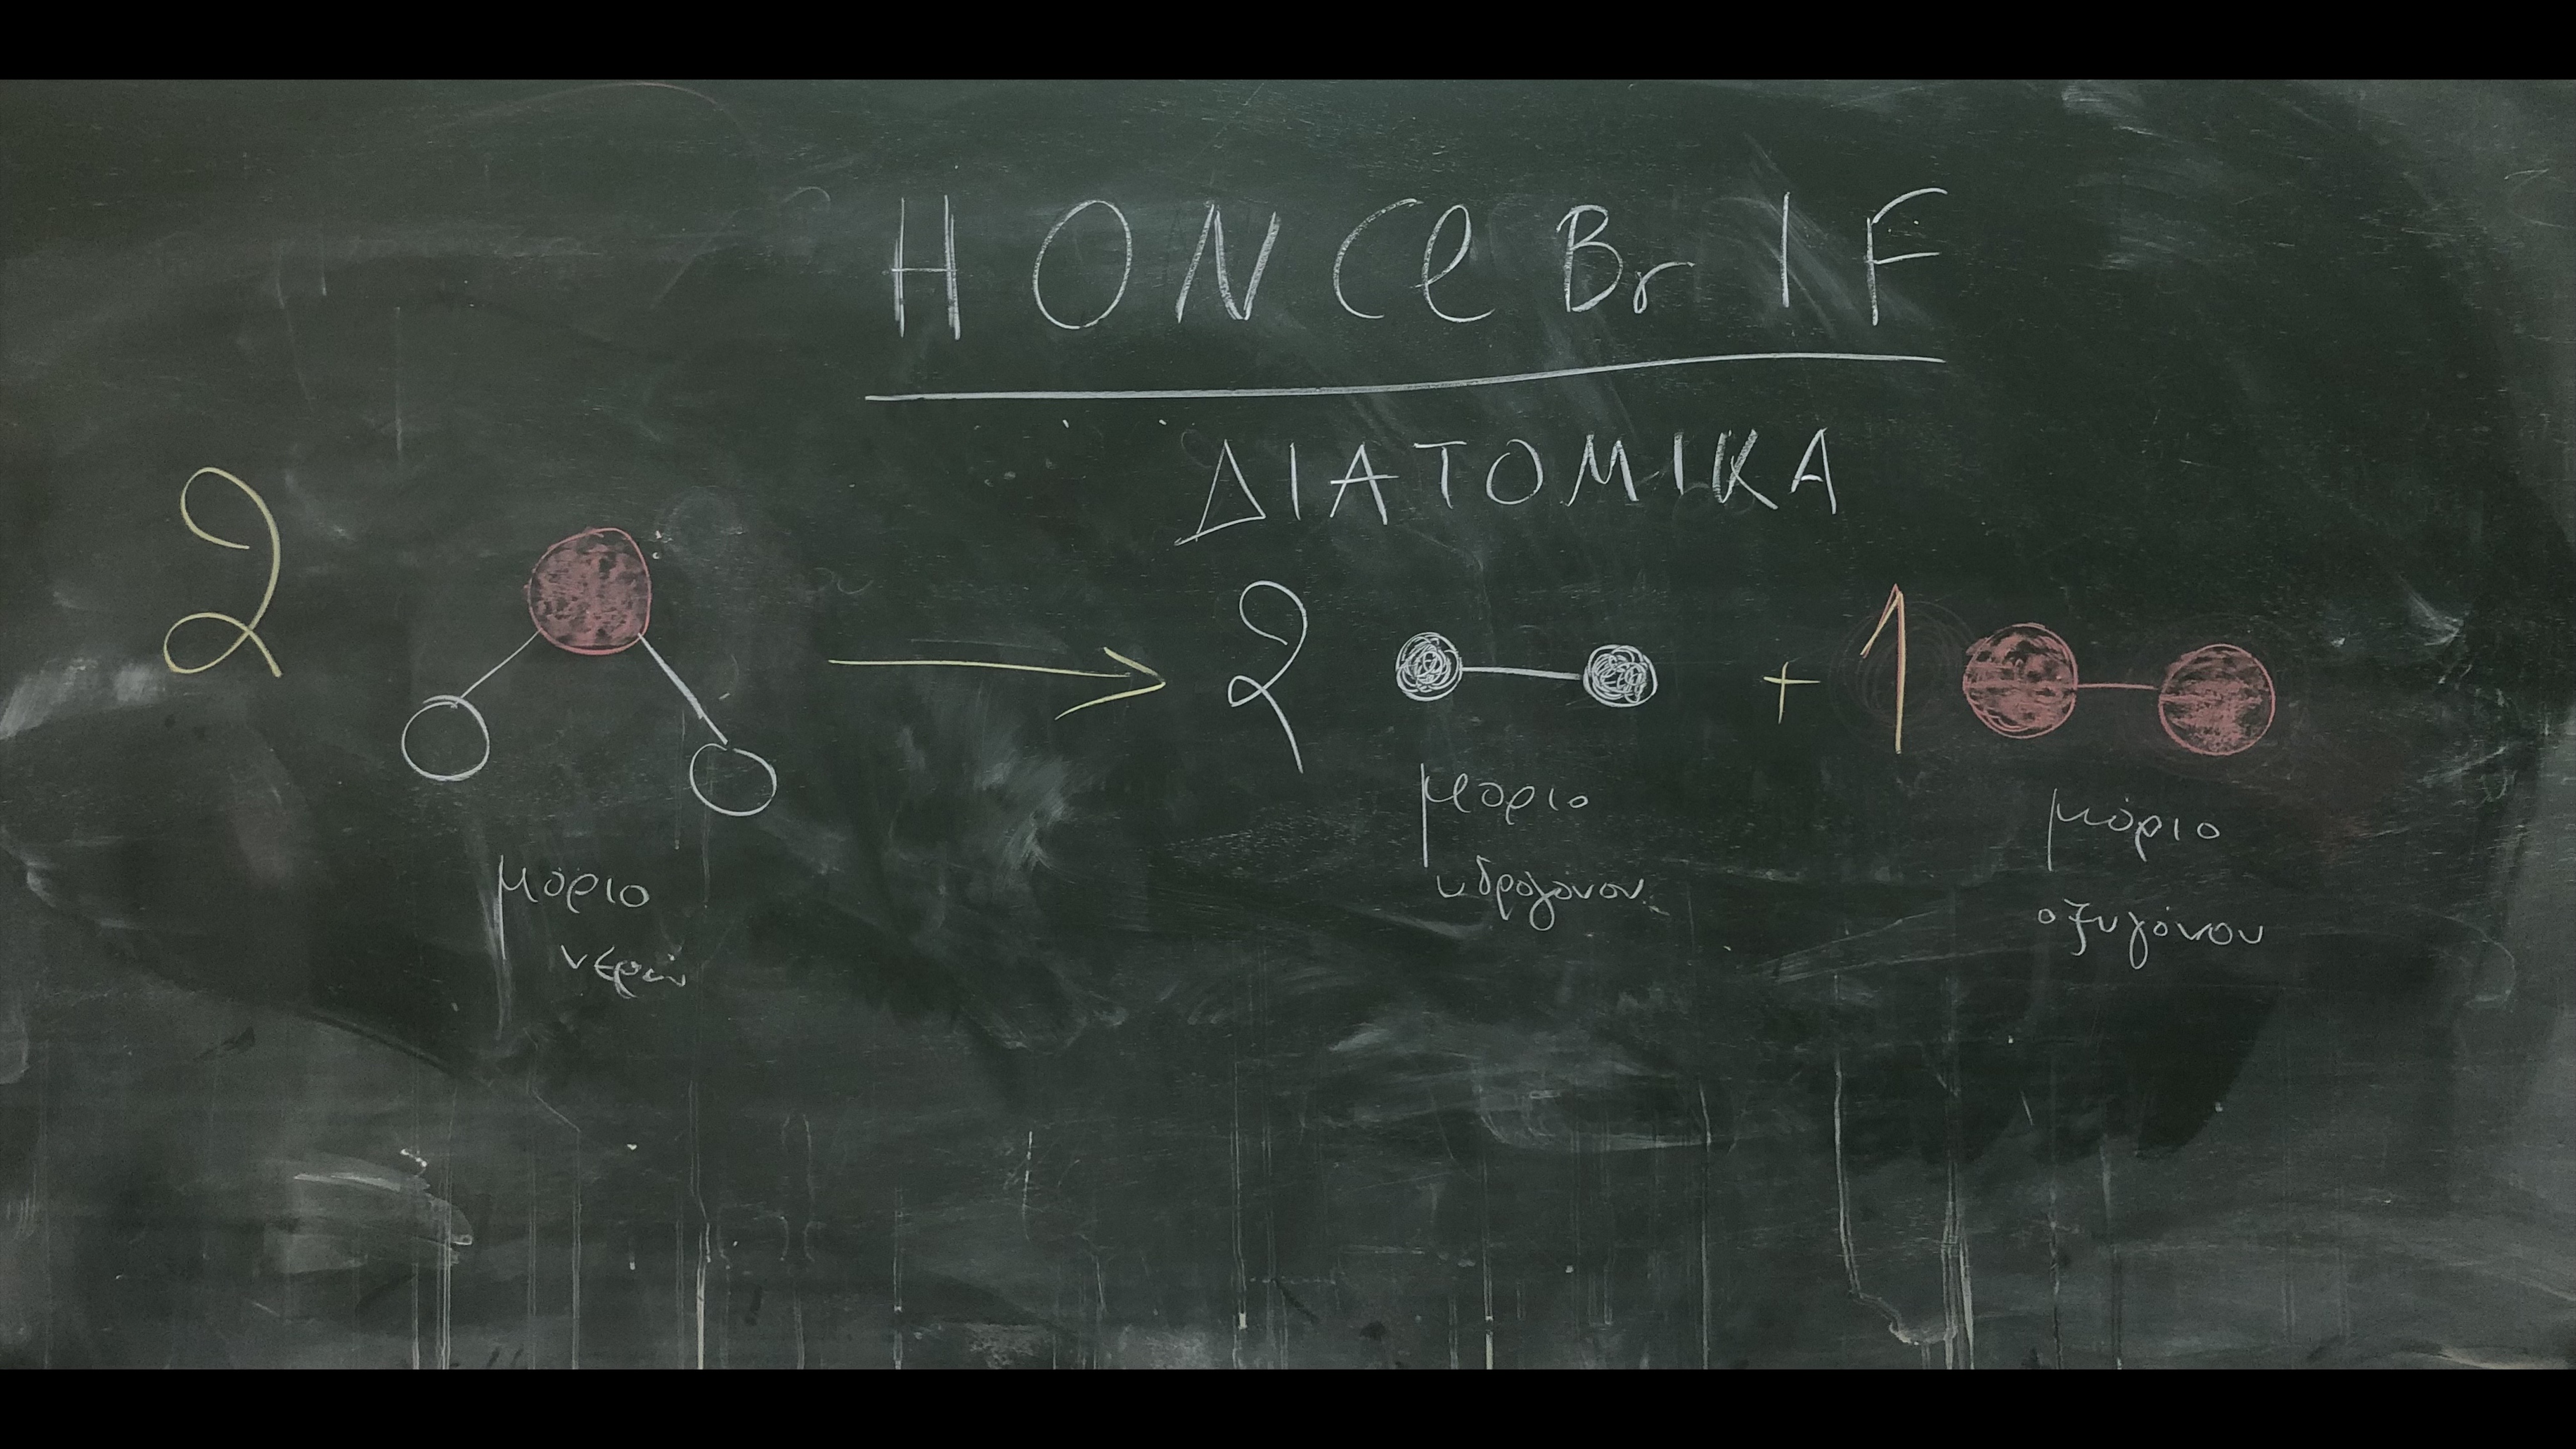 H O N Cl Br I F
ΔΙΑΤΟΜΙΚΑ
2 → 2 + 1
μόριο
νερού
μόριο
υδρογόνου
μόριο
οξυγόνου